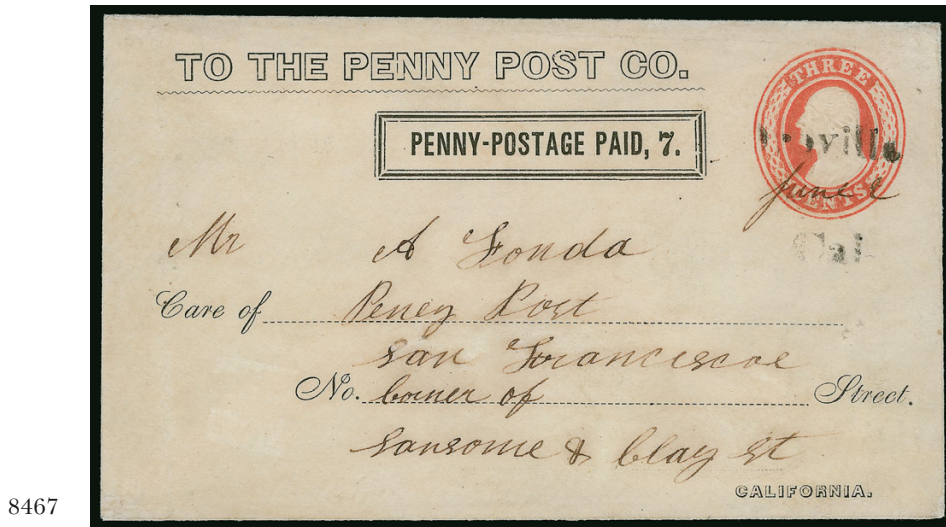 TO THE PENNY POST CO.
THREE
CENTS
PENNY-POSTAGE PAID, 7.
June 2
Cal
Mr A Fonda
Care of Peney Post
San Franciscoe
No. Corner of Street.
Sansome & Clay St
CALIFORNIA.
8467